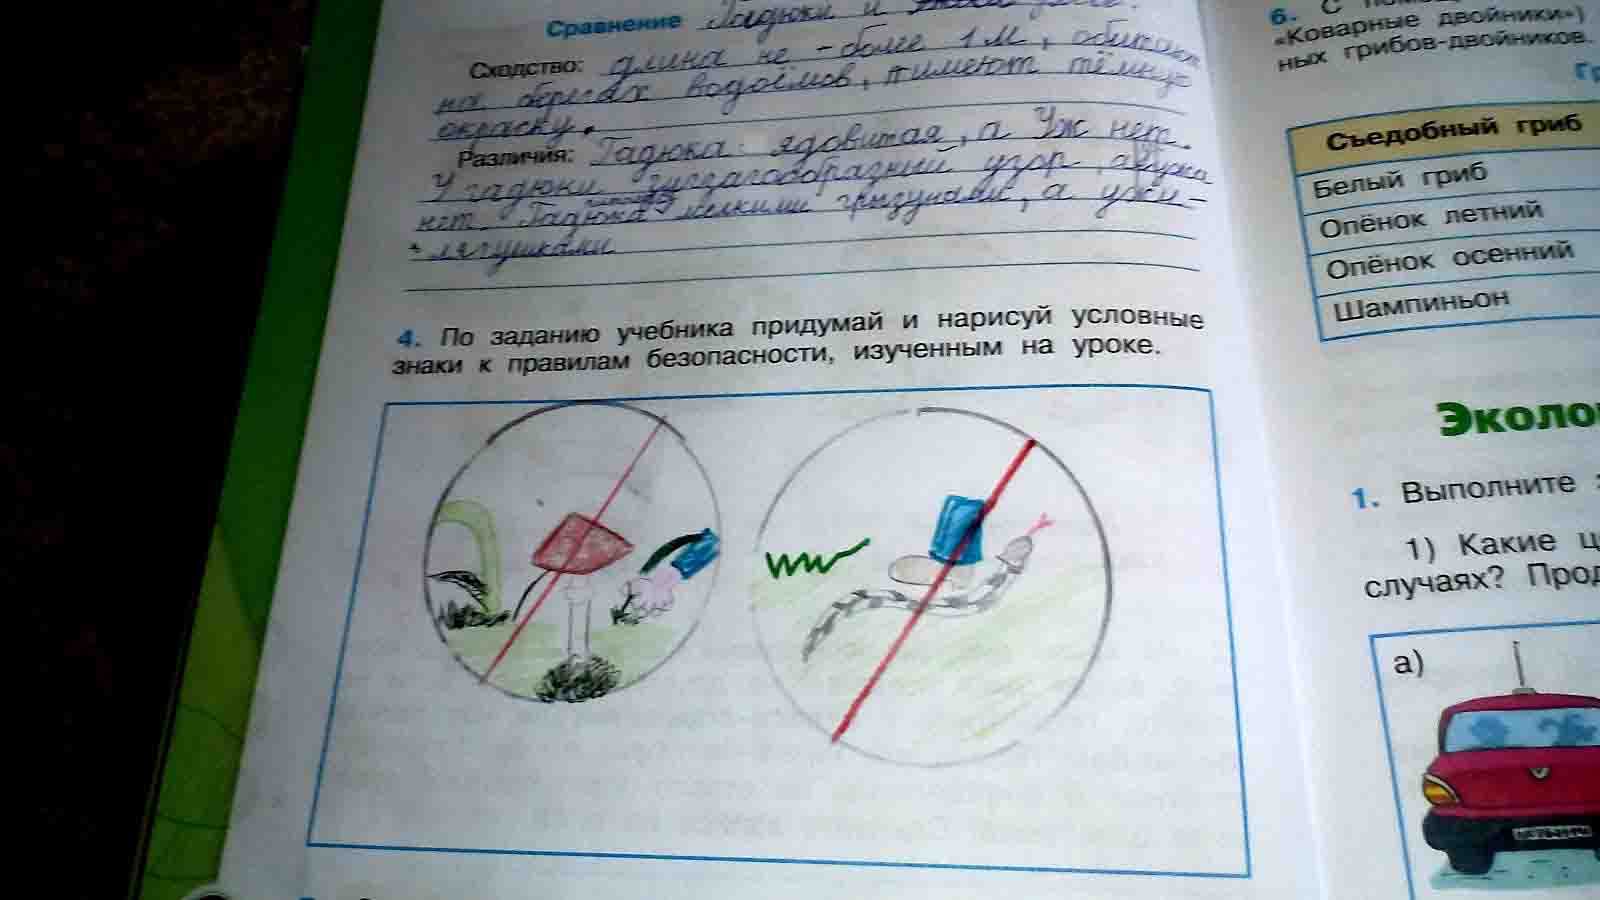 Сравнение Гадюки и
Сходство: длина не - более 1 м, обитают
на берегах водоёмов, имеют тёмную
окраску.
Различия: Гадюка ядовитая, а Уж нет.
У гадюки зигзагообразный узор, а у ужа
нет. Гадюка питается мелкими грызунами, а ужи -
лягушками
4. По заданию учебника придумай и нарисуй условные
знаки к правилам безопасности, изученным на уроке.
6. С
«Коварные двойники»)
ных грибов-двойников.
Съедобный гриб
Белый гриб
Опёнок летний
Опёнок осенний
Шампиньон
Эколо
1. Выполните
1) Какие ц
случаях? Прод
а)